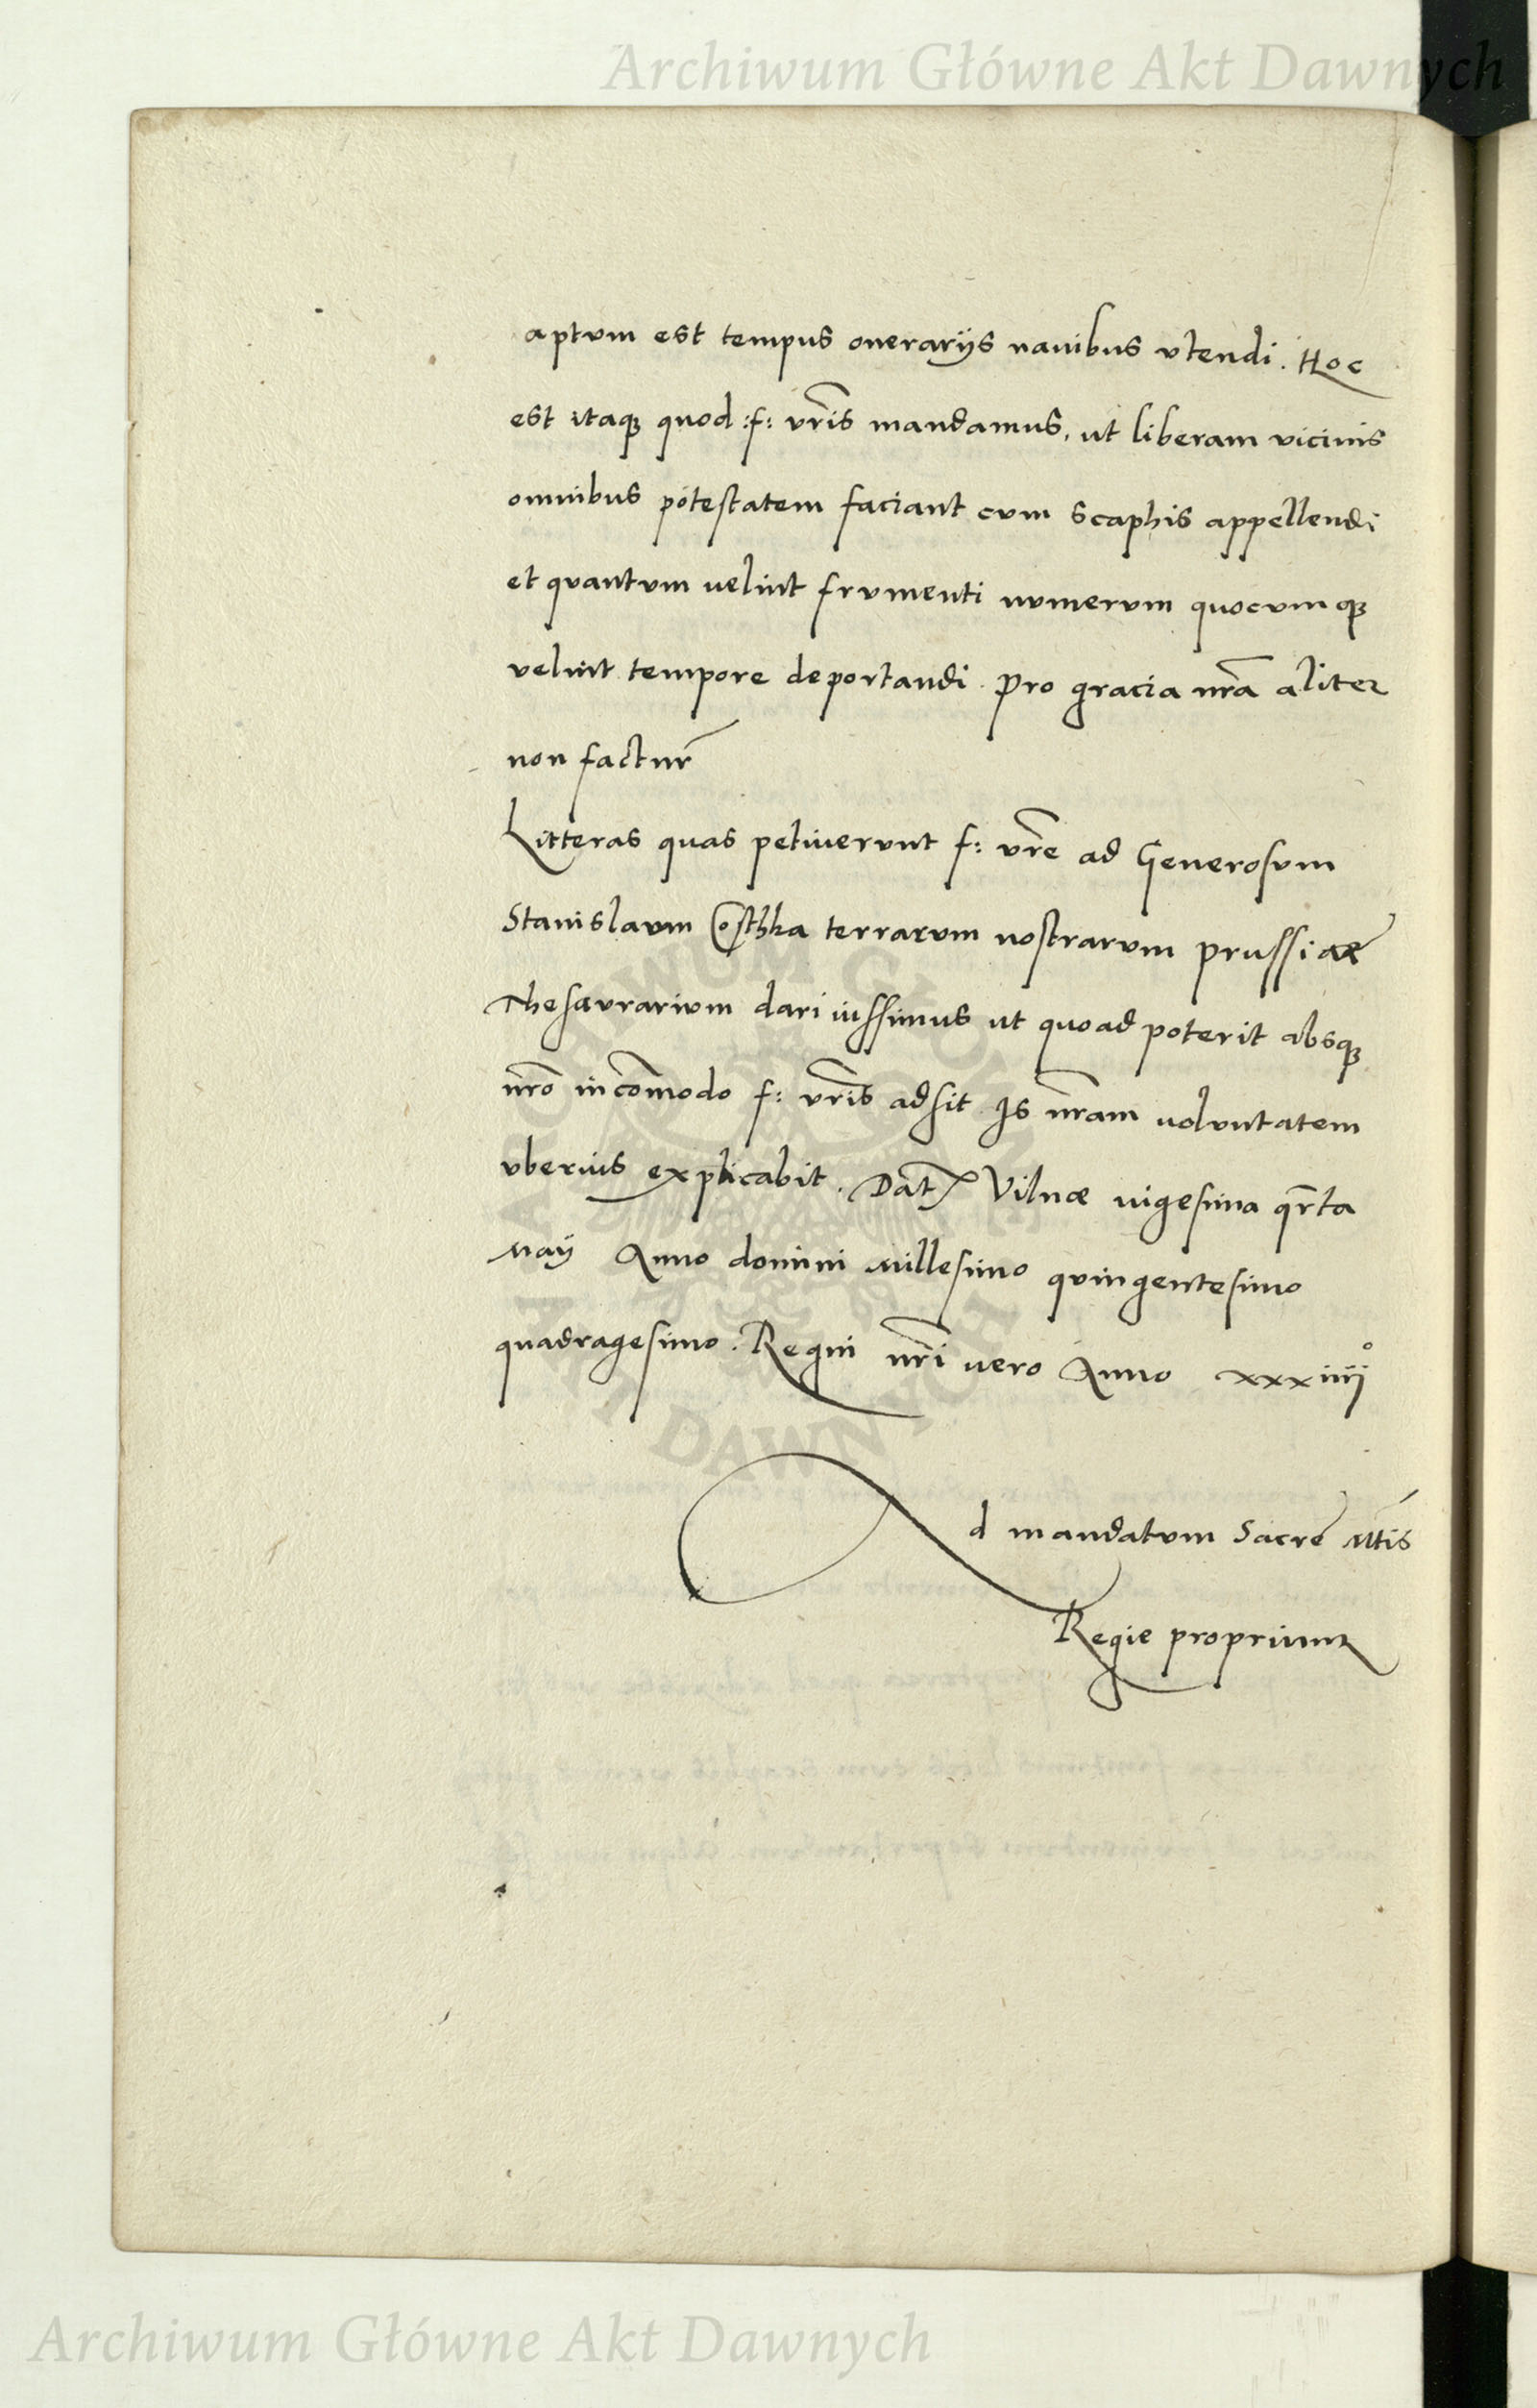 Archiwum Główne Akt Dawnych
aptum est tempus onerarijs nauibus vtendi. Hoc
est itaq3 quod :f: vris mandamus, ut liberam vicinis
omnibus potestatem faciant cum scaphis appellendi
et quantum uelint frumenti numerum quocumq3
velint tempore deportandi. Pro gracia nra aliter
non factur
Litteras quas petiuerunt f: vre ad Generosum
Stanislaum Costhka terrarum nostrarum prussiae
Thesaurarium dari iussimus ut quoad poterit absq3
nro incomodo f: vris adsit Is nram voluntatem
vberius explicabit. Dat Vilnae uigesima qrta
Maij Anno domini Millesimo quingentesimo
quadragesimo. Regni nri uero Anno xxxiiij°
Ad mandatum Sacre Mtis
Regie proprium
ARCHIWUM GŁÓWNE AKT DAWNYCH
Archiwum Główne Akt Dawnych